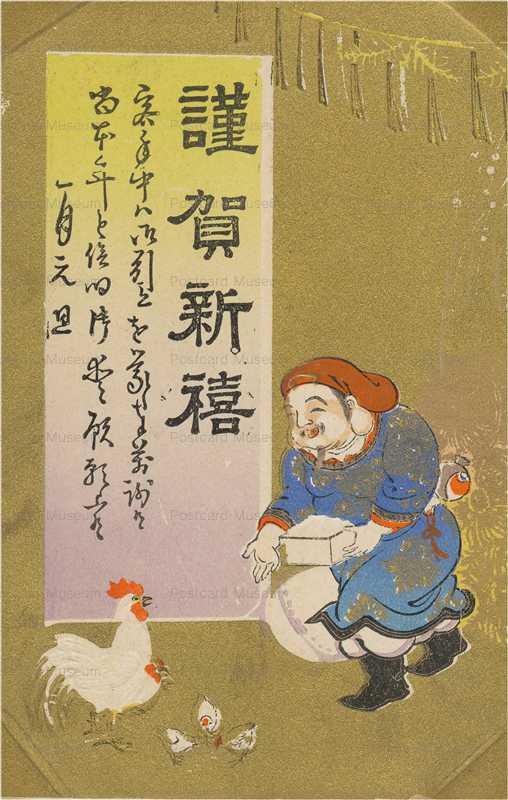 謹賀新禧
客年中ハ御引立を蒙り奉萬謝候
尚本年も倍旧御愛顧願上候
一月元旦
Postcard Museum